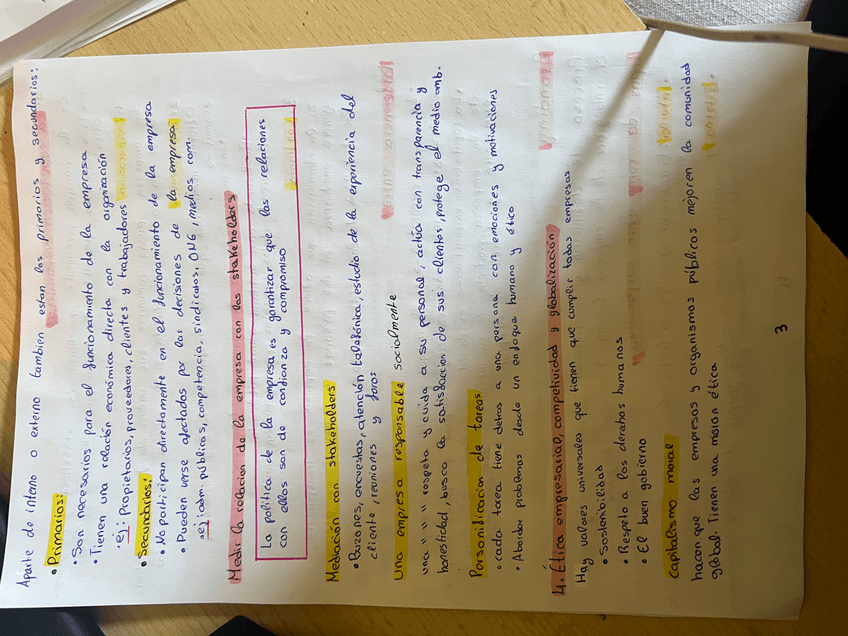 Aparte de interno o externo tambien estan los primarios y secundarios:
• Primarios:
• Son necesarios para el funcionamiento de la empresa
• Tienen una relación económica directa con la orgonzación
• ej: Propietarios, proveedores, clientes y trabajadores
• Secundarios:
• No participan directamente en el funcionamiento de la empresa
• Pueden verse afectados por las decisiones de la empresa
• ej: adm. públicas, competencia, sindicatos, ONG, medios com.
Medir la relacion de la empresa con las stakeholders
La política de la empresa es garantizar que las relaciones
con ellos son de confianza y compromiso
Mediación con stakeholders
• Buzones, encuestas, atención telefónica, estudio de la experiencia del
cliente, reuniones y foros
Una empresa responsable socialmente
una " " " respeta y cuida a su personal, actúa con transparencia y
honestidad, busca la satisfaccion de sus clientes, protege el medio amb.
Personificacion de tareas
• cada tarea tiene detras a una persona con emociones y motivaciones
• Abordar problemas desde un enfoque humano y ético
4. Ética empresarial, competividad y globalización
Hay valores universales que tienen que cumplir todas empresas
• Sostenibilidad
• Respeto a los derechos humanos
• El buen gobierno
Capitalismo moral
hacen que las empresas y organismos públicos mejoren la comunidad
global. Tienen una mision ética
3